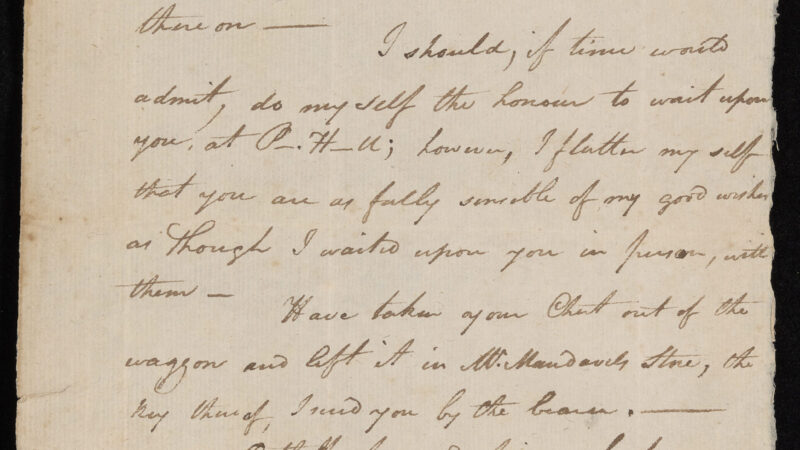 thereon —
I should, if time would
admit, do myself the honour to wait upon
you, at P—. H—ll; however, I flatter my self
that you are as fully sensible of my good wishes
as though I waited upon you in person, with
them —
Have taken your Chest out of the
waggon and left it in Mr. Mandavils Store, the
key thereof, I send you by the bearer. —